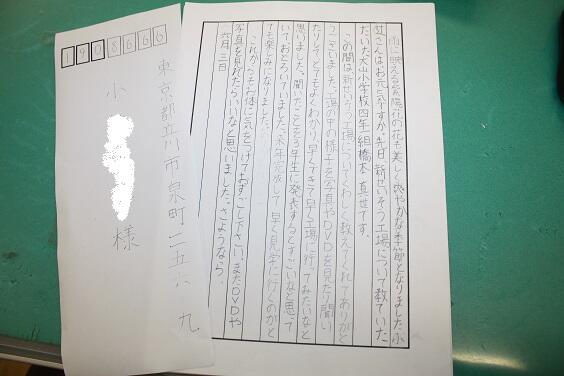 雨に映える紫陽花の花も美しく爽やかな季節となりました小
さんはお元気ですか。先日、新せいそう工場について教ていた
だいた大小学校四年組橋本真世です。
この間は、新せいそう工場についてくわしく教えてくれてありがと
うございました。場の中の様子を写真やDVDを見たり聞い
たりして、とてもよくわかり、早くできて早く工場に行ってみたいなと
思いました。聞いたことを3年生に発表するとすごいなと思って
いておどろいていました。来年完成して早く見学に行くのがと
ても楽しみになりました。
これからもお体に気をつけておすごし下さい。またDVDや
写真を見れたらいいなと思いました。さようなら。
六月三日
1908666
東京都立川市泉町一一五六 九
小 様